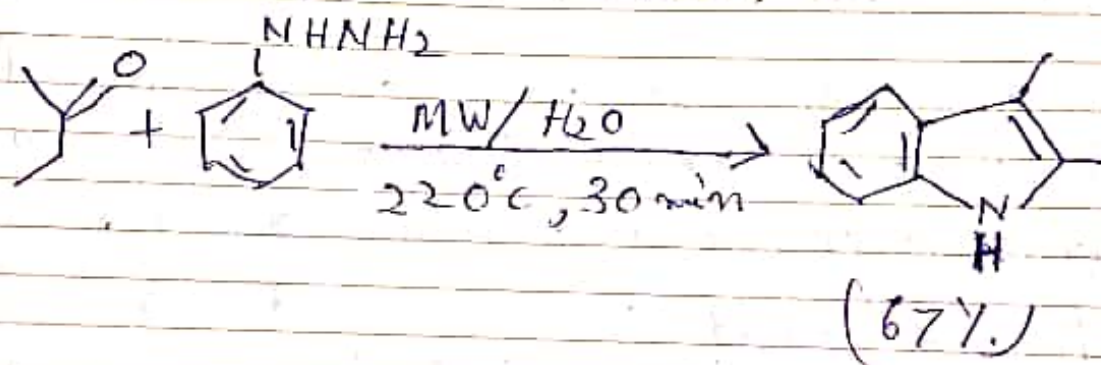 NHNH2
O
+
MW/H2O
220°C, 30 min
N
H
(67%)